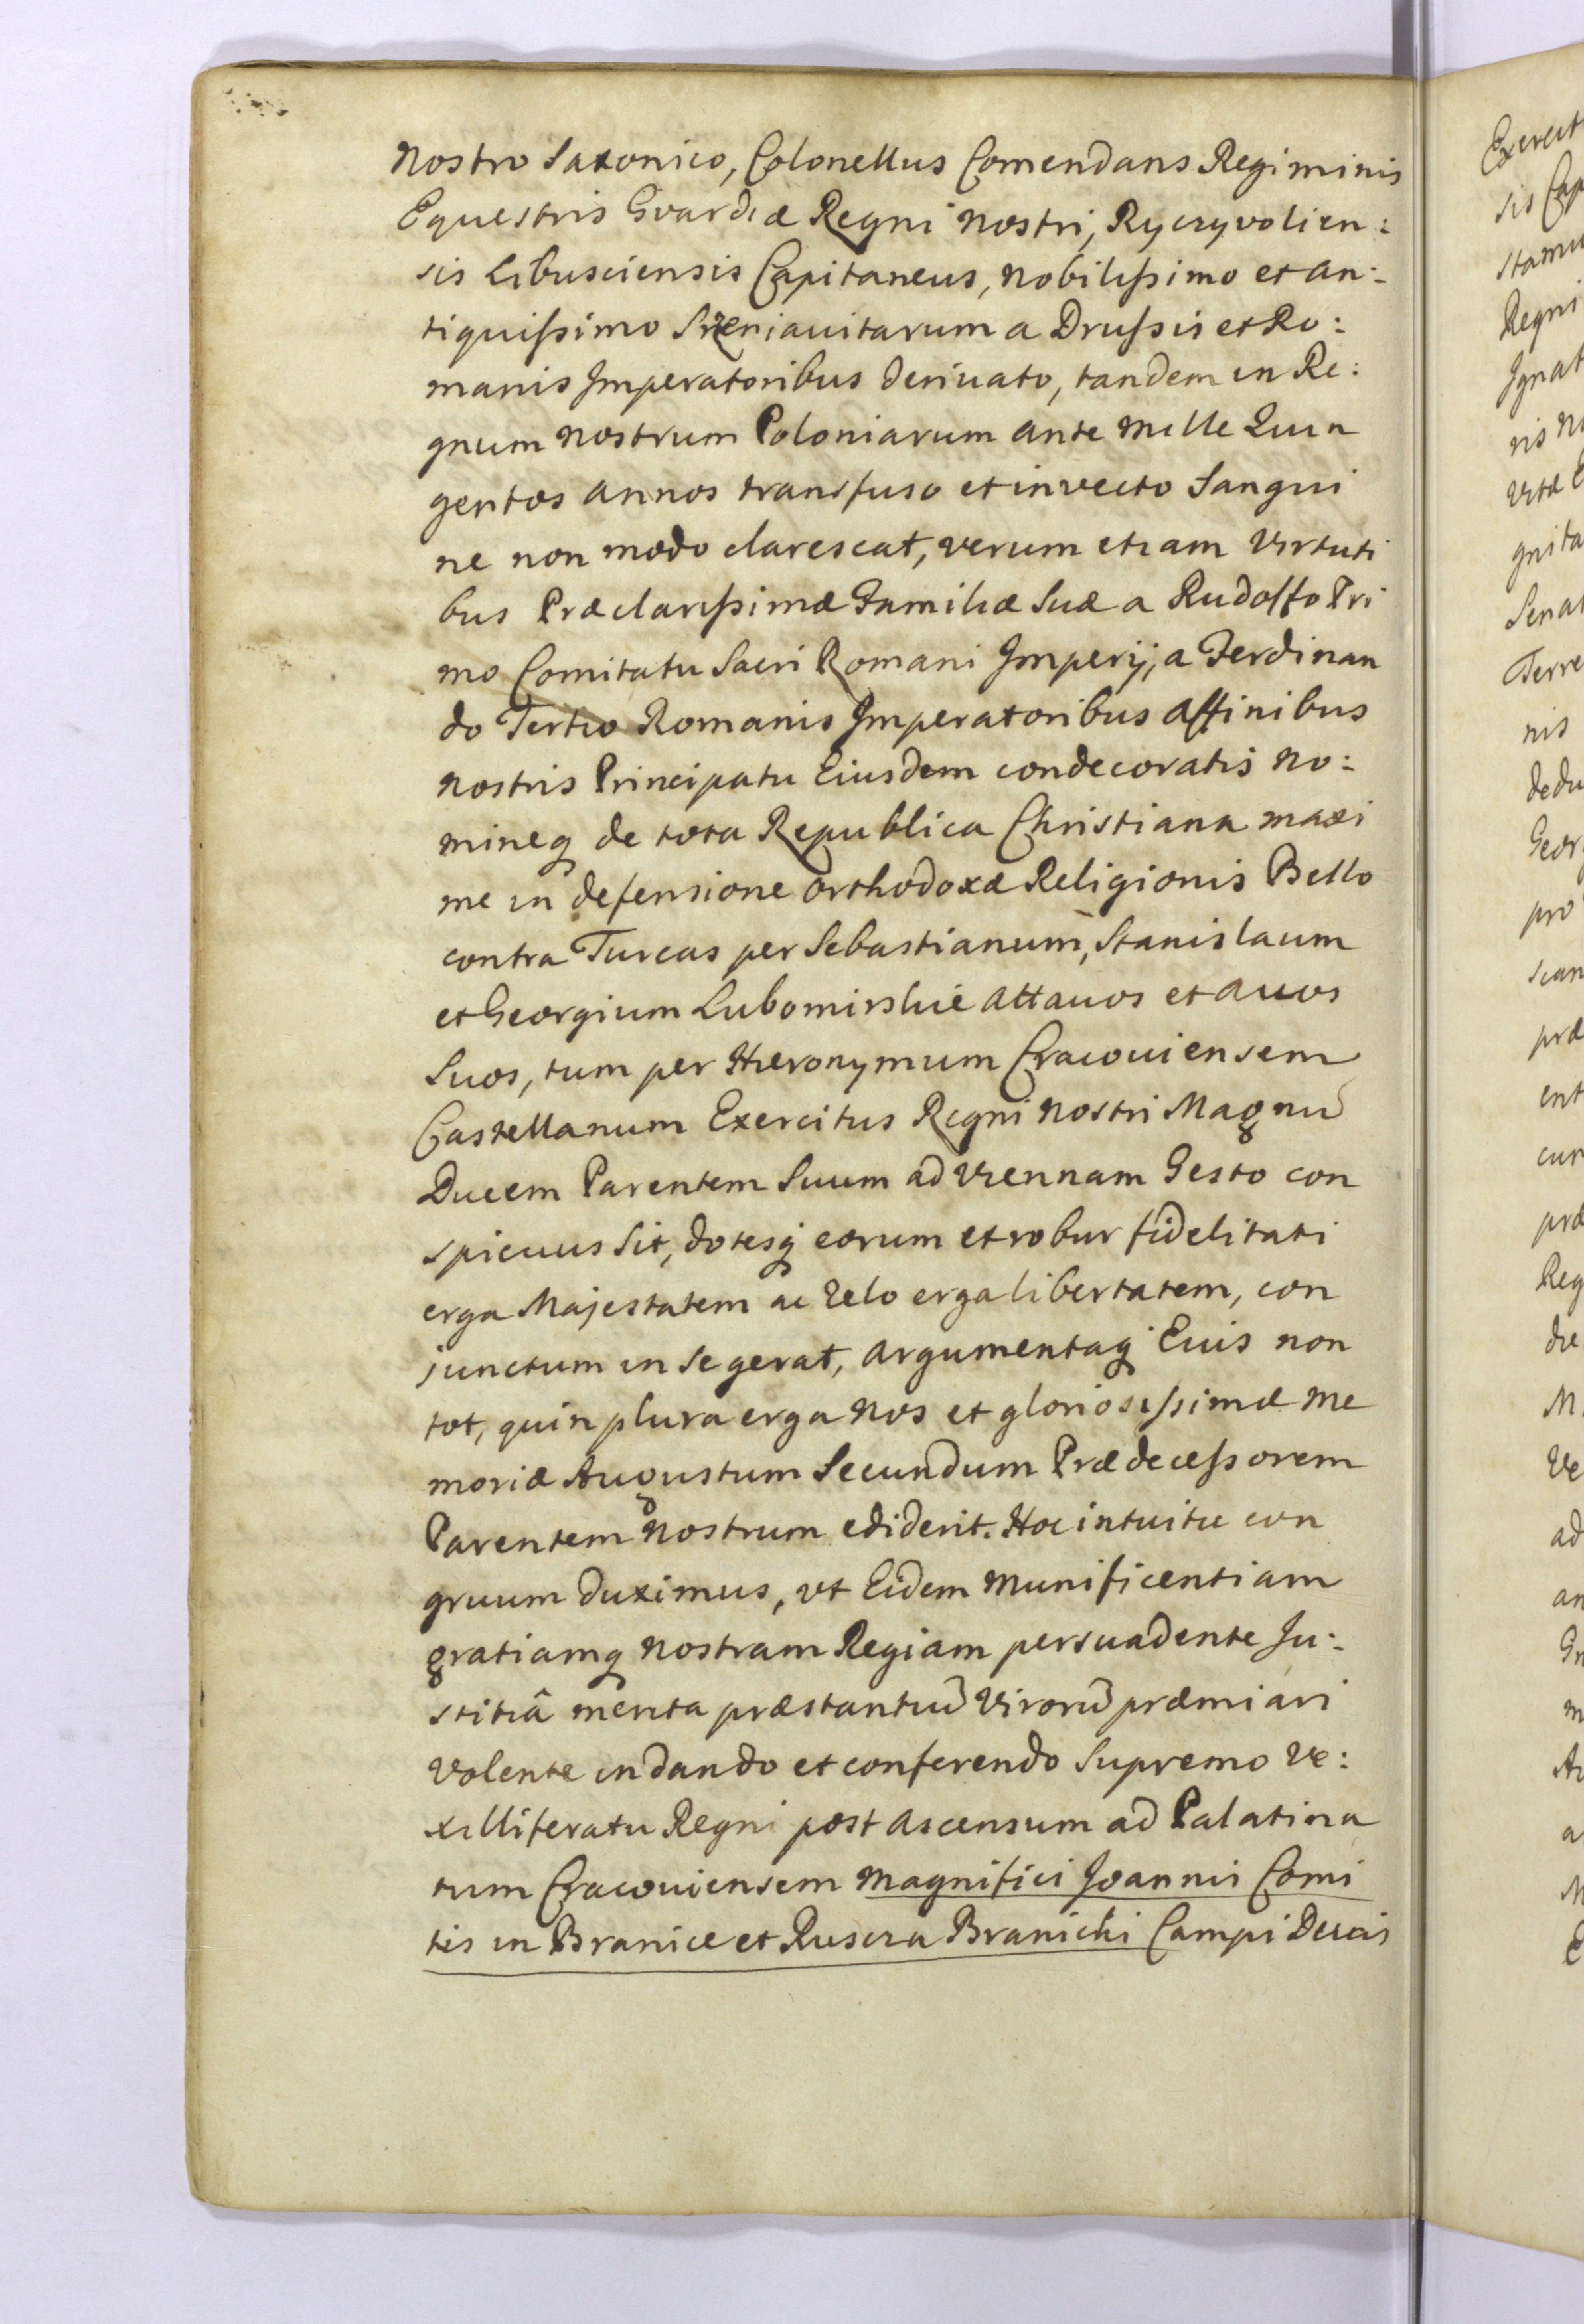 Nostro Saxonico, Colonellus Comendans Regiminis
Equestris Gvardiæ Regni Nostri, Ryczyvolien:
sis Libusciensis Capitaneus, Nobilissimo et An:
tiquissimo Srzeniavitarum a Drussis et Ro:
manis Imperatoribus derivato, tandem in Re:
gnum Nostrum Poloniarum Ante Mille Quin
gentos Annos transfuso et invecto Sangui
ne non modo clarescat, verum etiam Virtuti
bus Præclarissimæ Familiæ Suæ a Rudolfo Pri
mo Comitatu Sacri Romani Imperij, a Ferdinan
do Tertio Romanis Imperatoribus Affinibus
Nostris Principatu Eiusdem condecoratis No:
mineq de tota Republica Christiana maxi
me in defensione Orthodoxæ Religionis Bello
contra Turcas per Sebastianum, Stanislaum
et Georgium Lubomirskie Attavos et Avos
Suos, tum per Hieronymum Cracouiensem
Castellanum Exercitus Regni Nostri Magnũ
Ducem Parentem Suum ad Viennam Gesto con
spicuus Sit, dotesq eorum et robur fidelitati
erga Majestatem ac Zelo erga libertatem, con
junctum in Se gerat, Argumentaq Euis non
tot, quin plura erga Nos et gloriosissimæ Me
moriæ Augustum Secundum Prædecessorem
Parentem Nostrum ediderit. Hoc intuitu con
gruum duximus, Vt Eidem Munificentiam
gratiamq Nostram Regiam persuadente Ju:
stitiâ merita præstantiũ Virorũ præmiari
Volente in dando et conferendo Supremo Ve:
xilliferatu Regni post Ascensum ad Palatina
tum Cracouiensem Magnifici Joannis Comi
tis in Branice et Ruscza Branicki Campi Ducis